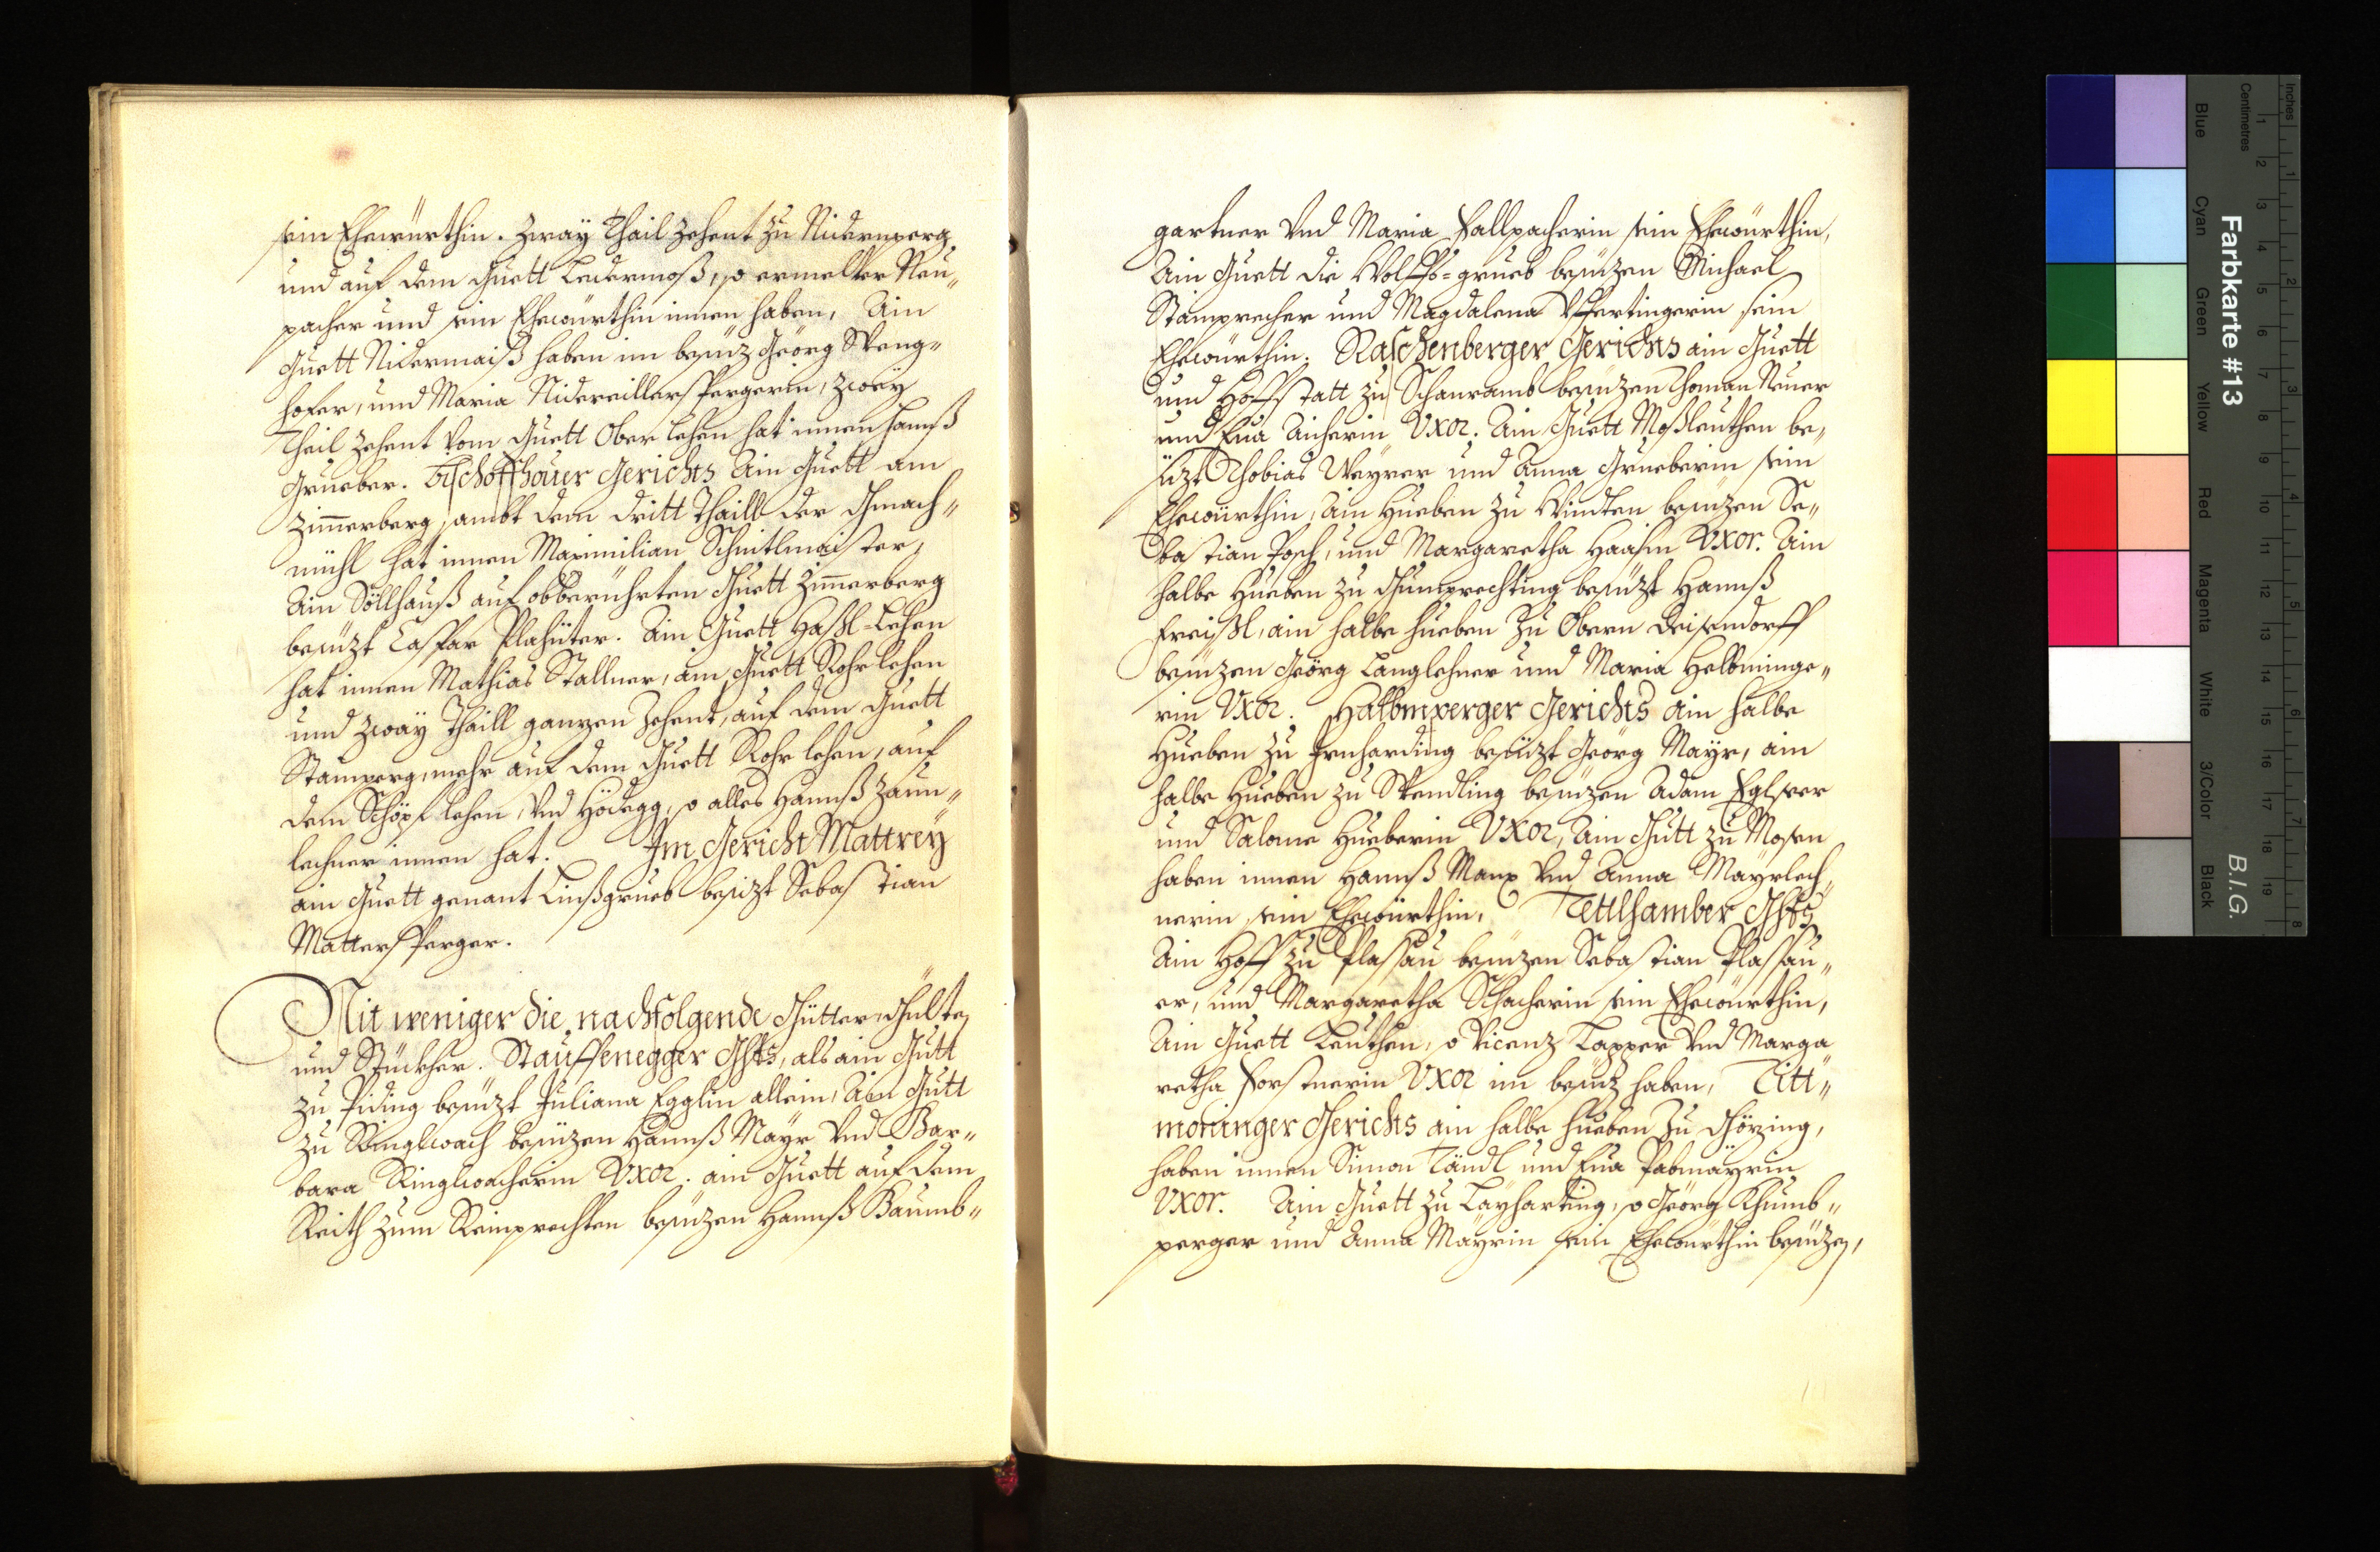 sein Ehewürthin. Zway Thail Zehent zu Nidernperg
und auf dem Guett Ledermoß, so ermelter Neu„
pacher und sein Ehewürthin innen haben, Ain
Guett Nidermaiß haben im besüz Geörg Steng„
hofer, und Maria Nidereillerspergerin, zwey
Theil Zehent vom Guett Oberlehen hat innen Hannß
Grueber. Bischoffhouer Gerichts Ain Guett am
Zim̄erberg, sambt dem dritt Thaill der Gmach„
mühl hat innen Maximilian Schnitlmaister,
Ain Söllhauß auf obberührten Guett Zim̄erberg
besüzt Caspar Plahüter. Ain Guett Häßl-Lehen
hat innen Mathias Stallner, ain Guett Rohrlehen
und zwäy Thaill ganzen Zehent, auf dem Guett
Stamperg, mehr auf dem Guett Rohrlehen, auf
dem Schöpflehen, vnd Hödegg, so alles Hannß Zaun„
lechner innen hat. Im Gericht Mattrey
ain Guett genant Linßgrueb besizt Sebastian
Mattersperger.
Nit weniger die nachfolgende Gütter, Gülten
und Stuckher. Stauffenegger Ghts, als ain Gutt
zu Piding besüzt Juliana Egglin allein, Ain Gutt
zu Ringlwach besüzen Hannß Mayr vnd Bar„
bara Ringlwacherin Vxor. ain Guett auf dem
Reith zum Reimprechten besüzen Hannß Baumb„
gartner vnd Maria Fallpacherin sein Ehewürthin,
Ain Guett die Wolffs-grueb besüzen Michael
Stamprecher und Magdalena Pfertingerin sein
Ehewürthin. Raschenberger Gerichts ain Guett
und Hoffstatt zu Schanramb besüzen Thoman Neuer
und Eua Aicherin Vxor. Ain Guett Moßleuthen be„
süzt Thobias Weyrer und Anna Grueberin sein
Ehewürthin, Ain Hueben zu Windten besüzen Se„
bastian Posch, und Margaretha Haasin Vxor. Ain
halbe Hueben zu Gumprechting besüzt Hannß
Freißl, ain halbe Hueben Zu Obern Deisendorff
besüzen Geörg Langlehner und Maria Helbminge„
rin Vxor. Halbmperger Gerichts ain halbe
Hueben zu Irnharding besüzt Geörg Mayr, ain
halbe Hueben zu Stendling besüzen Adam Eglseer
und Salome Hueberin Vxor, Ain Gutt zu Mosen
haben innen Hannß Manx vnd Anna Mayrlech„
nerin sein Ehewürthin, Tettlhamber Ghts
Ain Hoff zu Plassau besüzen Sebastian Plassau„
er, und Margaretha Schacherin sein Ehewürthin,
Ain Guett Leuthen, so Vicenz Tapper vnd Marga
retha Forstnerin Vxor im besüz haben, Titt„
moninger Gerichts ain halbe Hueben Zu Göring,
haben innen Simon Tändl und Eua Pabmayrin
Vxor. Ain Guett zu Layharting, so Geörg Khumb„
perger und Anna Mayrin sein Ehewürthin besüzen,
Farbkarte #13
B.I.G.
Inches
Centimetres
Blue
Cyan
Green
Yellow
Red
Magenta
White
3/Color
Black